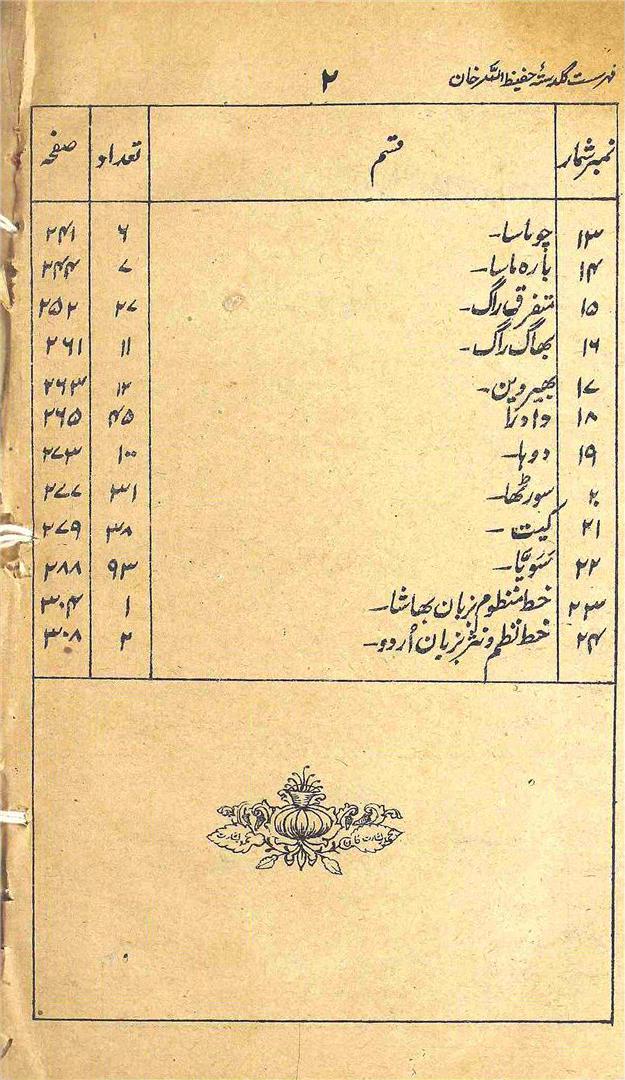 فہرست گلدستۂ حفیظ اللہ خان ۲
نمبر شمار قسم تعداد صفحہ
۱۳ چوماسا۔ ۶ ۲۴۱
۱۴ بارہ ماسا۔ ۷ ۲۴۴
۱۵ متفرق راگ۔ ۲۷ ۲۵۲
۱۶ بھاگ راگ۔ ۱۱ ۲۶۱
۱۷ بھیروین۔ ۱۲ ۲۶۳
۱۸ دادرا ۴۵ ۲۶۵
۱۹ دوہا۔ ۱۰۰ ۲۷۳
۲۰ سورٹھا۔ ۳۱ ۲۷۷
۲۱ کبت ۔ ۳۸ ۲۷۹
۲۲ سَویّا۔ ۹۳ ۲۸۸
۲۳ خط منظوم بزبان بھاشا۔ ۱ ۳۰۴
۲۴ خط نظم و نثر بزبان اُردو۔ ۲ ۳۰۸